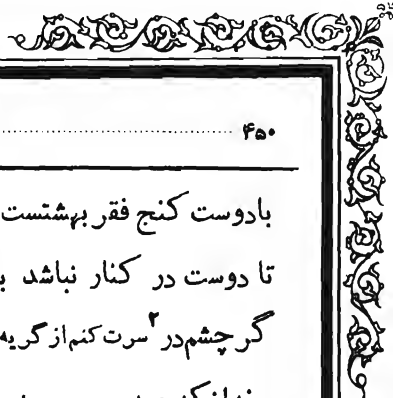 ۴۵۰ ........................................
بادوست کنج فقر بهشتست
تا دوست در کنار نباشد
گر چشم در ۲ سرت کنم از گریه